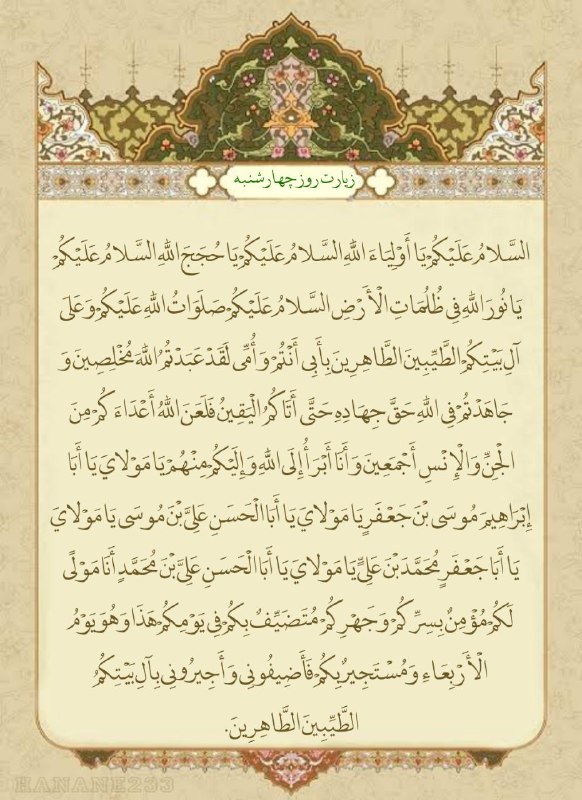 زیارت روز چهارشنبه
السَّلَامُ عَلَیْکُمْ یَا أَوْلِیَاءَ اللَّهِ السَّلَامُ عَلَیْکُمْ یَا حُجَجَ اللَّهِ السَّلَامُ عَلَیْکُمْ
یَا نُورَ اللَّهِ فِی ظُلُمَاتِ الْأَرْضِ السَّلَامُ عَلَیْکُمْ صَلَوَاتُ اللَّهِ عَلَیْکُمْ وَ عَلَى
آلِ بَیْتِکُمُ الطَّیِّبِینَ الطَّاهِرِینَ بِأَبِی أَنْتُمْ وَ أُمِّی لَقَدْ عَبَدْتُمُ اللَّهَ مُخْلِصِینَ وَ
جَاهَدْتُمْ فِی اللَّهِ حَقَّ جِهَادِهِ حَتَّى أَتَاکُمُ الْیَقِینُ فَلَعَنَ اللَّهُ أَعْدَاءَکُمْ مِنَ
الْجِنِّ وَ الْإِنْسِ أَجْمَعِینَ وَ أَنَا أَبْرَأُ إِلَى اللَّهِ وَ إِلَیْکُمْ مِنْهُمْ یَا مَوْلَایَ یَا أَبَا
إِبْرَاهِیمَ مُوسَى بْنَ جَعْفَرٍ یَا مَوْلَایَ یَا أَبَا الْحَسَنِ عَلِیَّ بْنَ مُوسَى یَا مَوْلَایَ
یَا أَبَا جَعْفَرٍ مُحَمَّدَ بْنَ عَلِیٍّ یَا مَوْلَایَ یَا أَبَا الْحَسَنِ عَلِیَّ بْنَ مُحَمَّدٍ أَنَا مَوْلًى
لَکُمْ مُؤْمِنٌ بِسِرِّکُمْ وَ جَهْرِکُمْ مُتَضَیِّفٌ بِکُمْ فِی یَوْمِکُمْ هَذَا وَ هُوَ یَوْمُ
الْأَرْبِعَاءِ وَ مُسْتَجِیرٌ بِکُمْ فَأَضِیفُونِی وَ أَجِیرُونِی بِآلِ بَیْتِکُمُ
الطَّیِّبِینَ الطَّاهِرِینَ.
HANANE233